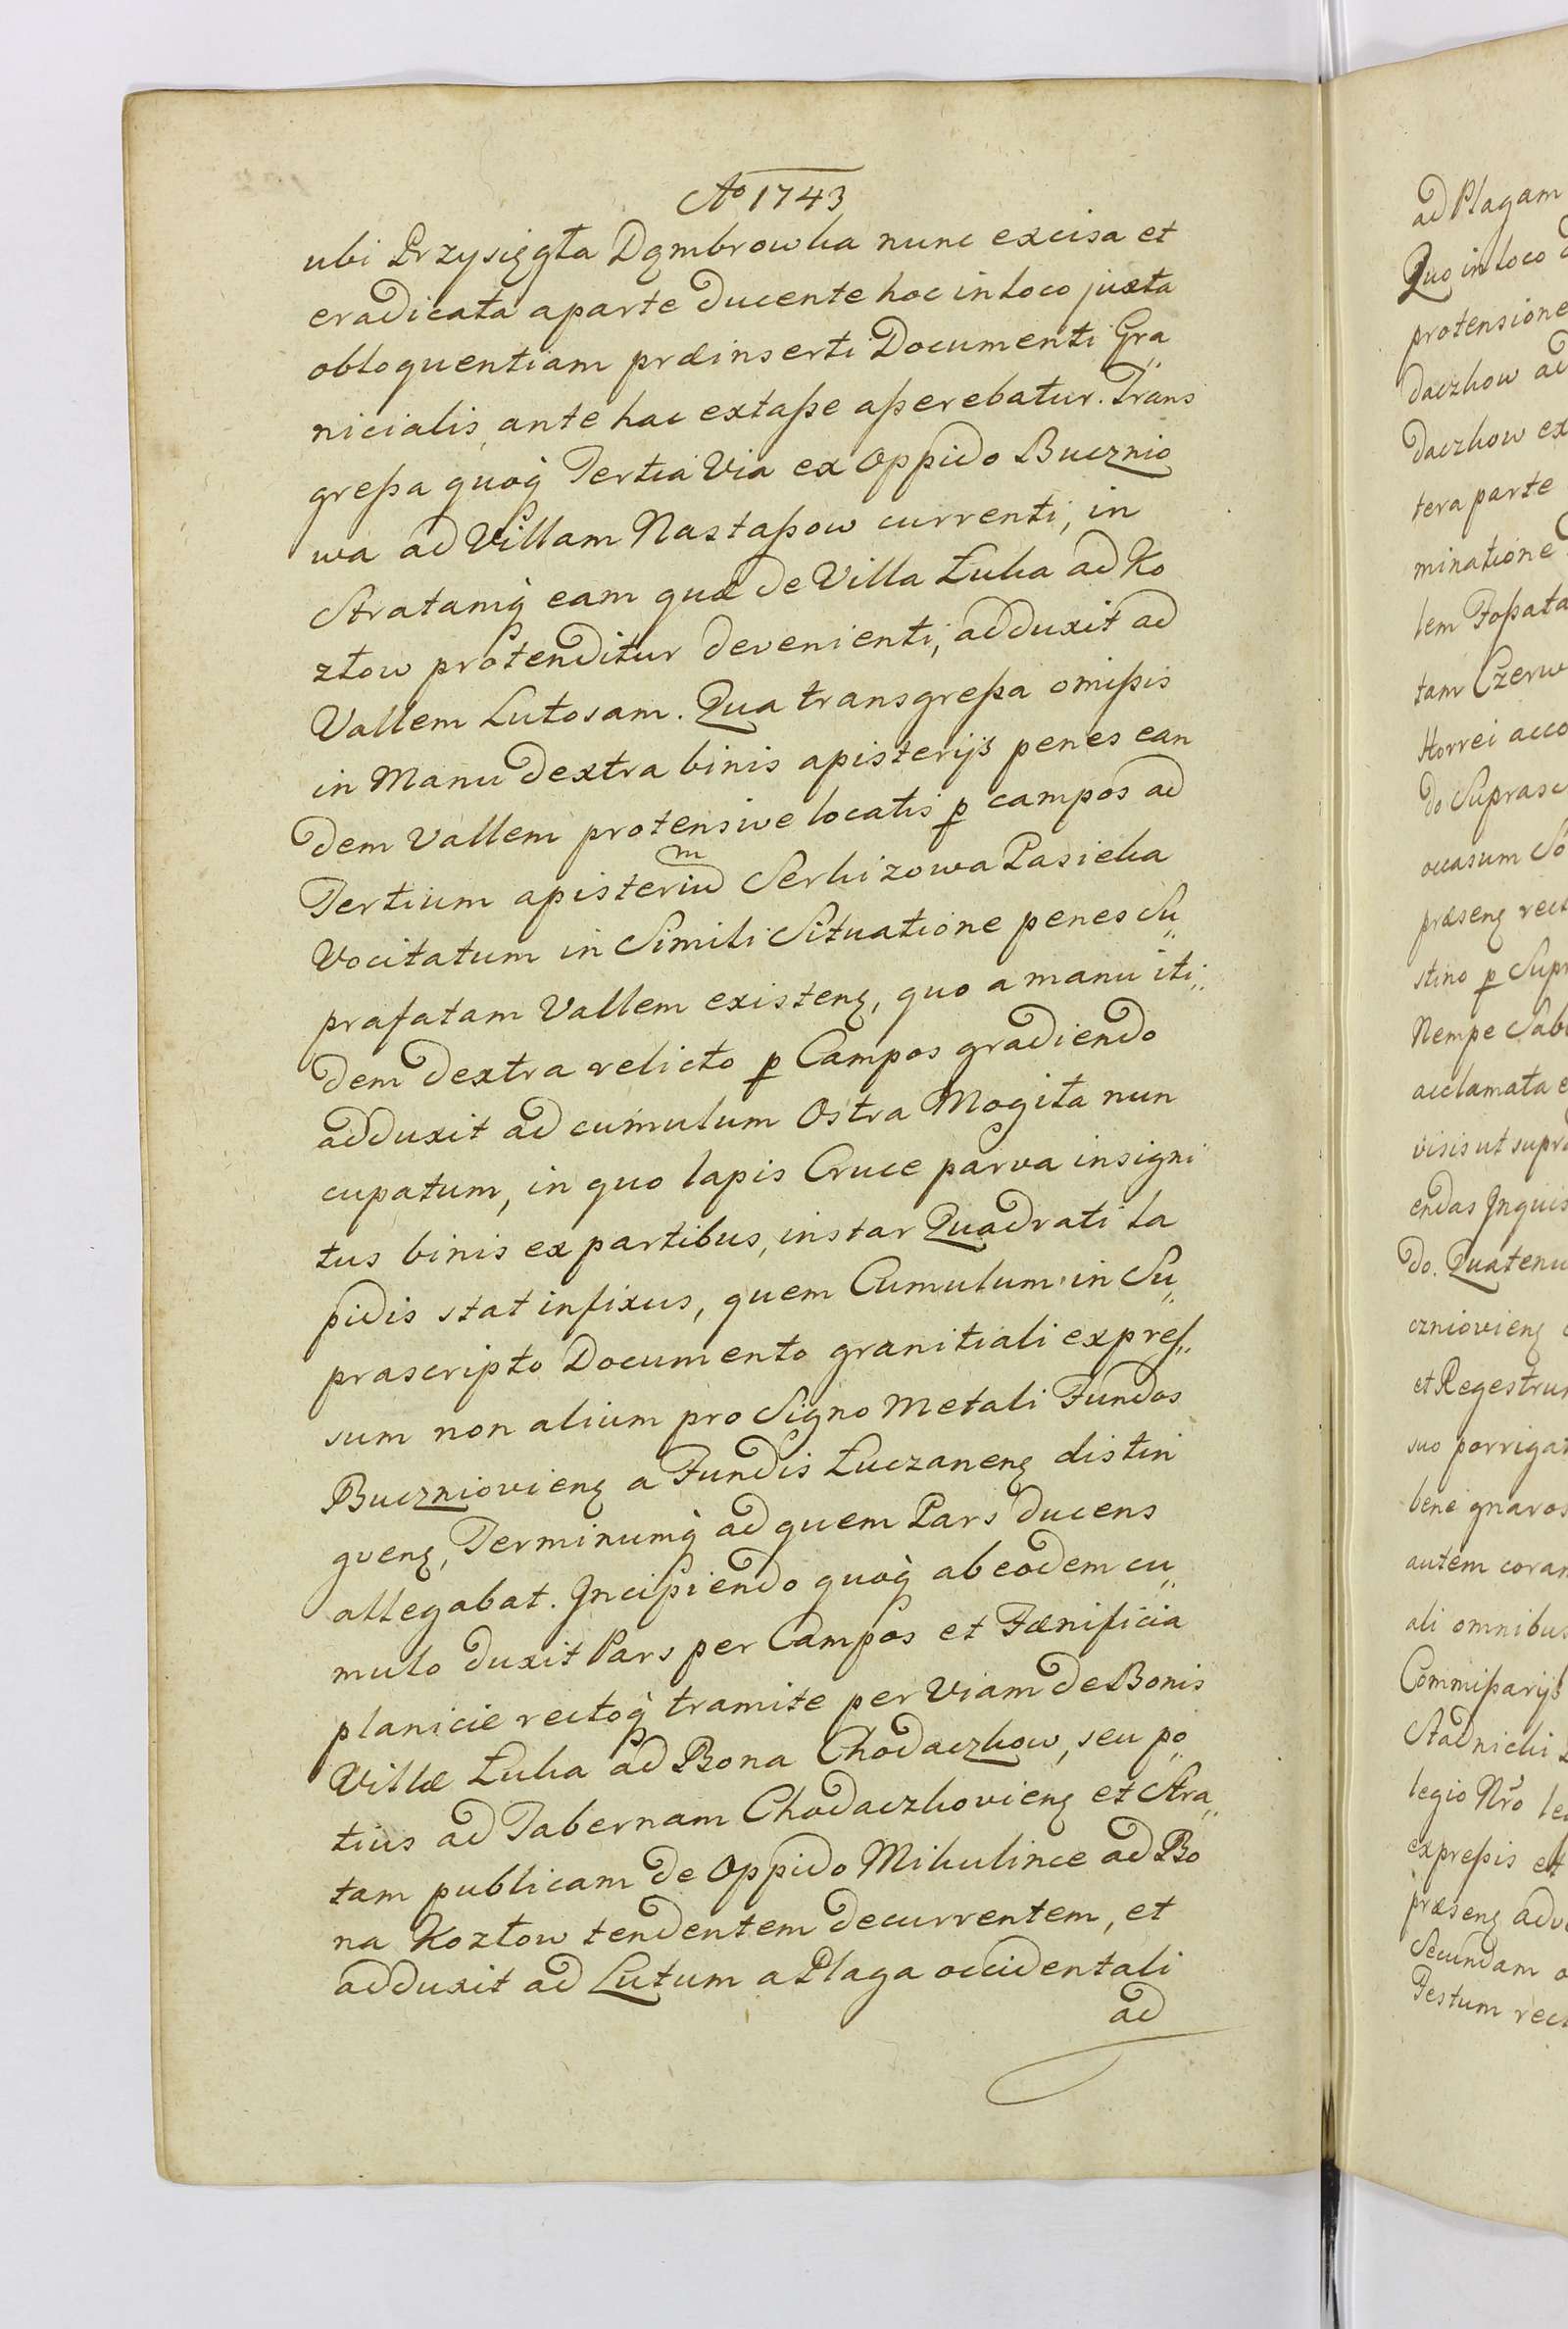 Aº 1743
ubi Przysięgła Dąmbrowka nunc excisa et
eradicata a parte ducente hoc in loco juxta
obloquentiam præinserti Documenti Gra„
nicialis, ante hac extaße aßerebatur. Trans
greßa quoq̀ Tertia Via ex Oppido Bucznio
wa ad Villam Nastaßow currenti, in
Stratamq̀ eam quæ de Villa Łuka ad Ko
złow protenditur devenienti, adduxit ad
Vallem Lutosam. Qua transgreßa omißis
in Manu dextra binis apisterijs penes ean
dem Vallem protensive locatis p campos ad
Tertium apisteriũm Serkizowa Pasieka
Vocitatum in Simili Situatione penes Su„
prafatam Vallem existenȝ, quo a manu iti„
dem dextra relicto p Campos gradiendo
adduxit ad cumulum Ostra Mogiła nun
cupatum, in quo lapis Cruce parva insigni
tus binis ex partibus, instar Quadrati la
pidis stat infixus, quem Cumulum in Su„
prascripto Documento granitiali expres„
sum non alium pro Signo Metali Fundos
Buczniovienȝ a Fundis Łuczanenȝ distin
gvenȝ, Terminumq̀ ad quem Pars ducens
allegabat. Incipiendo quoq̀ ab eodem cu„
mulo duxit Pars per Campos et Fænificia
planicie rectoq̀ tramite per Viam de Bonis
Villæ Łuka ad Bona Chodaczkow, seu po„
tius ad Tabernam Chodaczkovienȝ et Stra„
tam publicam de Oppido Mikulince ad Bo
na Kozłow tendentem decurrentem, et
adduxit ad Lutum a Plaga occidentali
ad

ad Plagam
Quo in loco
protensione
daczkow ad
daczkow ex
tera parte
minatione
lem Foßata
tam Czerw
Horrei acco
do Suprasc
occasum So
præsenȝ rect
stino p Supr
Nempe Sab
acclamata e
visis ut supra
endas Inquis
do. Quatenu
czniovienȝ
et Regestrum
suo porrigat
bene gnaros
autem coram
ali omnibus
Commißarijs
Stadnicki
legio Nro le
expreßis et
præsenȝ adv
Secundam
Festum rect